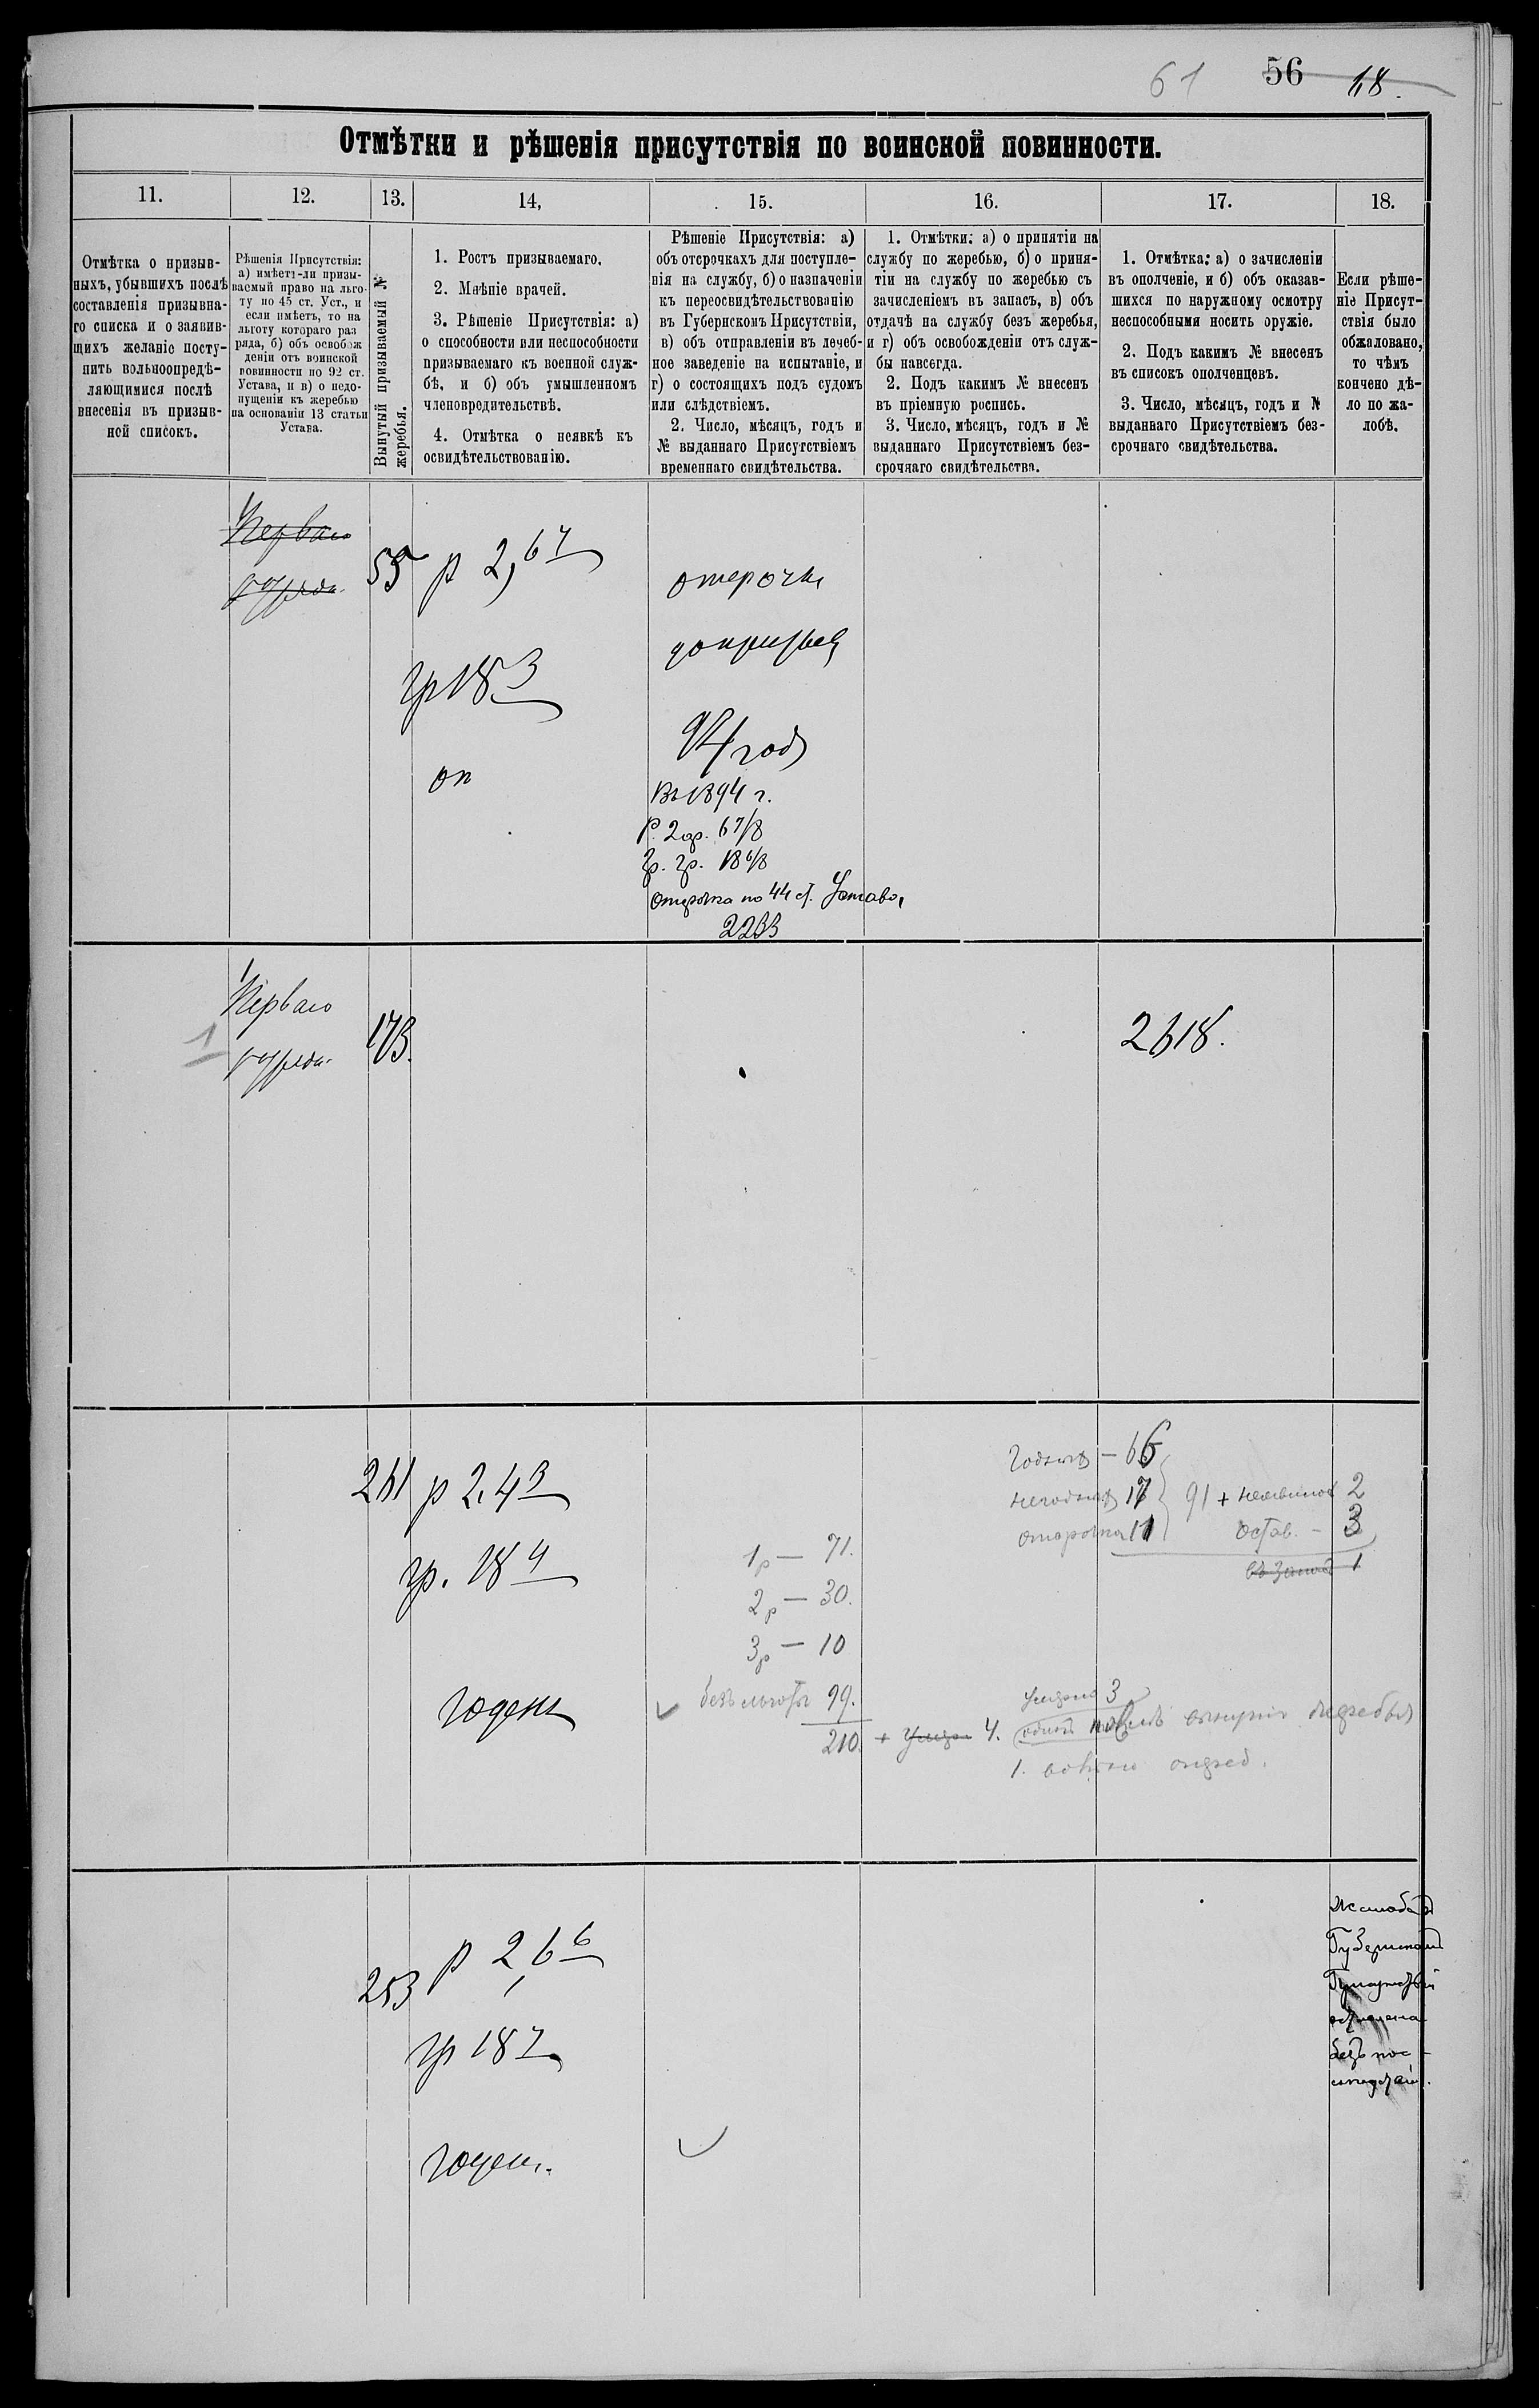 61 56 18.
Отмѣтки и рѣшенія присутствія по воинской повинности.
11. 12. 13. 14, 15. 16. 17. 18.
Отмѣтка о призыв-
ныхъ, убывшихъ послѣ
составленія призывна-
го списка и о заявив-
щихъ желаніе посту-
пить вольноопредѣ-
ляющимися послѣ
внесенія въ призыв-
ной списокъ.
Рѣшенія Присутствія:
а) имѣетъ-ли призы-
ваемый право на льго-
ту по 45 ст. Уст., и
если имѣетъ, то на
льготу котораго раз
ряда, б) объ освобож
деніи отъ воинской
повинности по 92 ст.
Устава, и в) о недо-
пущеніи къ жеребью
на основаніи 13 статьи
Устава.
Вынутый призываемый №
жеребья.
1. Ростъ призываемаго.
2. Мнѣніе врачей.
3. Рѣшеніе Присутствія: а)
о способности или неспособности
призываемаго къ военной служ-
бѣ, и б) объ умышленномъ
членовредительствѣ.
4. Отмѣтка о неявкѣ къ
освидѣтельствованію.
Рѣшеніе Присутствія: а)
объ отсрочкахъ для поступле-
нія на службу, б) о назначеніи
къ переосвидѣтельствованію
въ Губернскомъ Присутствіи,
в) объ отправленіи въ лечеб-
ное заведеніе на испытаніе, и
г) о состоящихъ подъ судомъ
или слѣдствіемъ.
2. Число, мѣсяцъ, годъ и
№ выданнаго Присутствіемъ
временнаго свидѣтельства.
1. Отмѣтки: а) о принятіи на
службу по жеребью, б) о приня-
тіи на службу по жеребью съ
зачисленіемъ въ запасъ, в) объ
отдачѣ на службу безъ жеребья,
и г) объ освобожденіи отъ служ-
бы навсегда.
2. Подъ какимъ № внесенъ
въ пріемную роспись.
3. Число, мѣсяцъ, годъ и №
выданнаго Присутствіемъ без-
срочнаго свидѣтельства.
1. Отмѣтка: а) о зачисленіи
въ ополченіе, и б) объ оказав-
шихся по наружному осмотру
неспособными носить оружіе.
2. Подъ какимъ № внесенъ
въ списокъ ополченцевъ.
3. Число, мѣсяцъ, годъ и №
выданваго Присутствіемъ без-
срочнаго свидѣтельства.
Если рѣше-
ніе Присут-
ствія было
обжаловано,
то чѣмъ
кончено дѣ-
ло по жа-
лобѣ.
Перваго
разряда
55
р 2,67
гр 183
оп
отсрочка
до призыва
94 года
Въ 1894 г.
р. 2 ар. 6 7/8
гр. 18 6/8
Отсрочка по 44 ст. Устава,
2233
1
Перваго
разряда
173.
2618.
261
р 2.43
гр. 184
годенъ
1р — 71.
2р — 30.
3р — 10
безъ льготы 99.
210. + 4.
Годныхъ — 65
негодныхъ 17
отсрочка 11
91 + неявился 2
остав. — 3
въ запасъ 1
умерло 3
жеребья
1. вольно опред.
253
р 2,66
гр 187
годенъ.
Жалоба въ
Губернское
Присутствіе
оставлена
безъ пос-